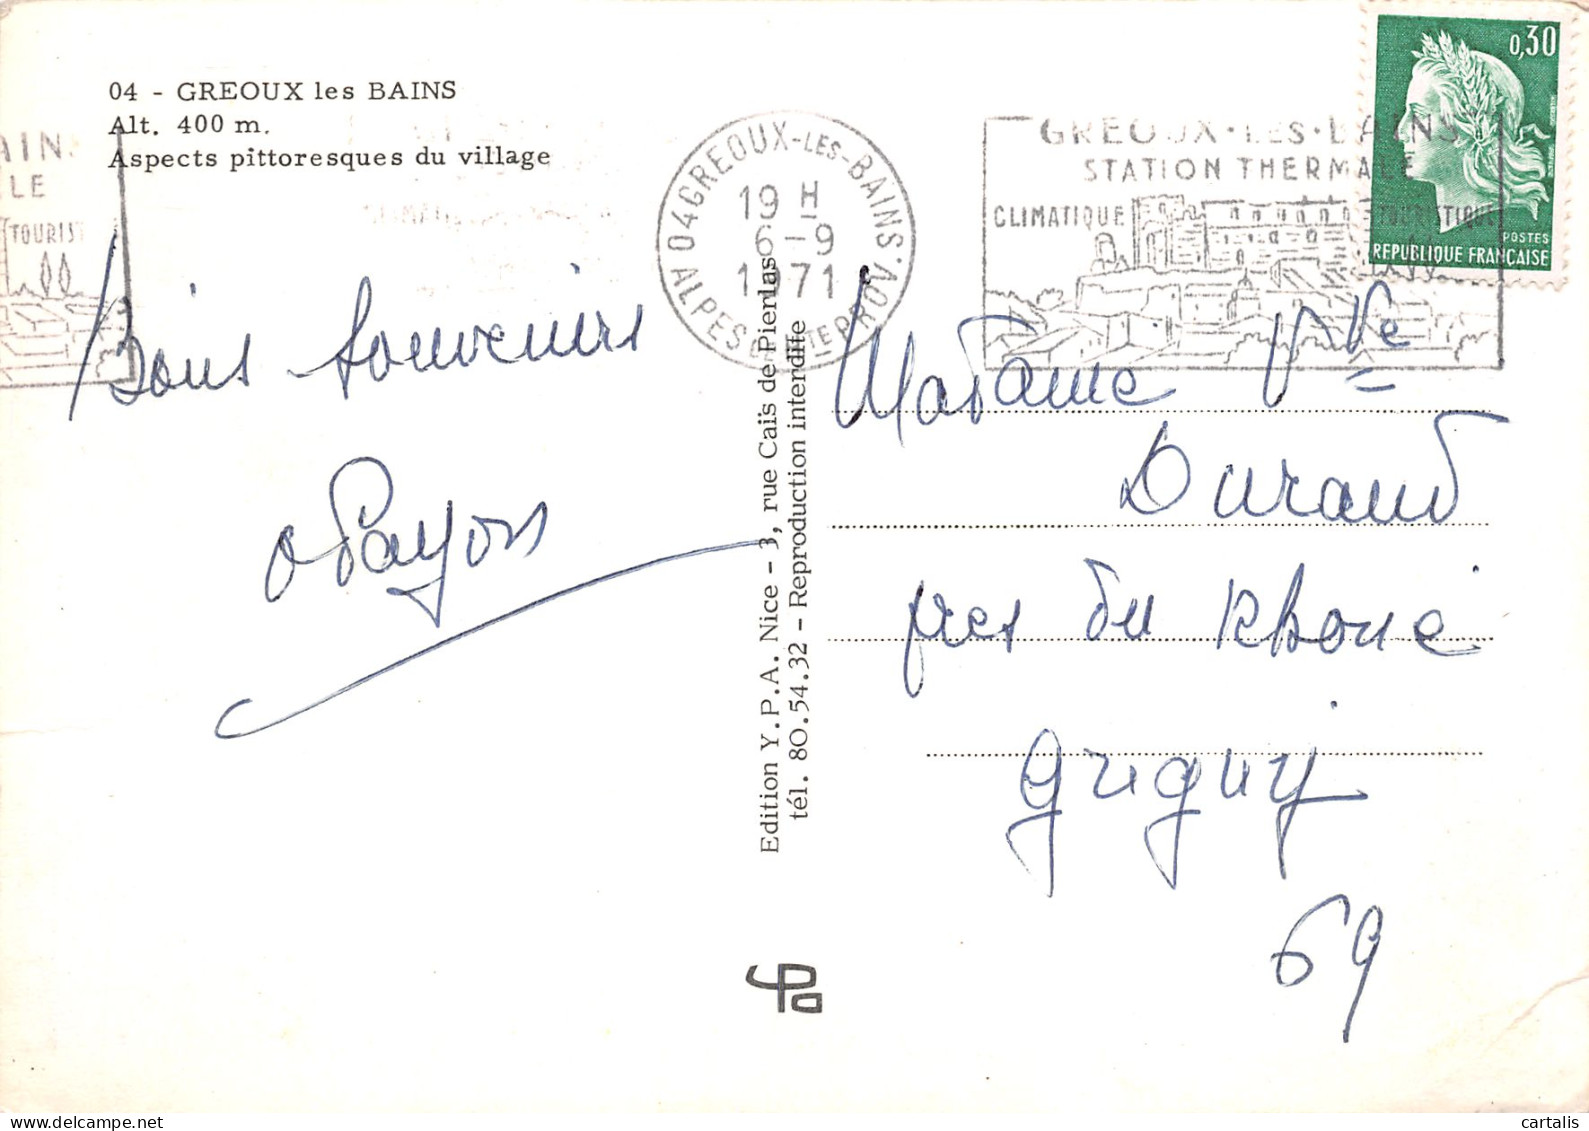 04 - GREOUX les BAINS
Alt. 400 m.
Aspects pittoresques du village
AIN
LE
TOURIS
04 GREOUX-LES-BAINS
19 H
6 - 9
1971
ALPES DE HTE PROV.
GREOUX·LES·BAINS
STATION THERMALE
CLIMATIQUE TOURISTIQUE
0,30
POSTES
REPUBLIQUE FRANÇAISE
Bons souvenirs
Payon
Edition Y.P.A. Nice - 3, rue Cais de Pierlas
tél. 80.54.32 - Reproduction interdite
Madame Vve
Durand
pres du Rhone
Grigny
69
cartalis